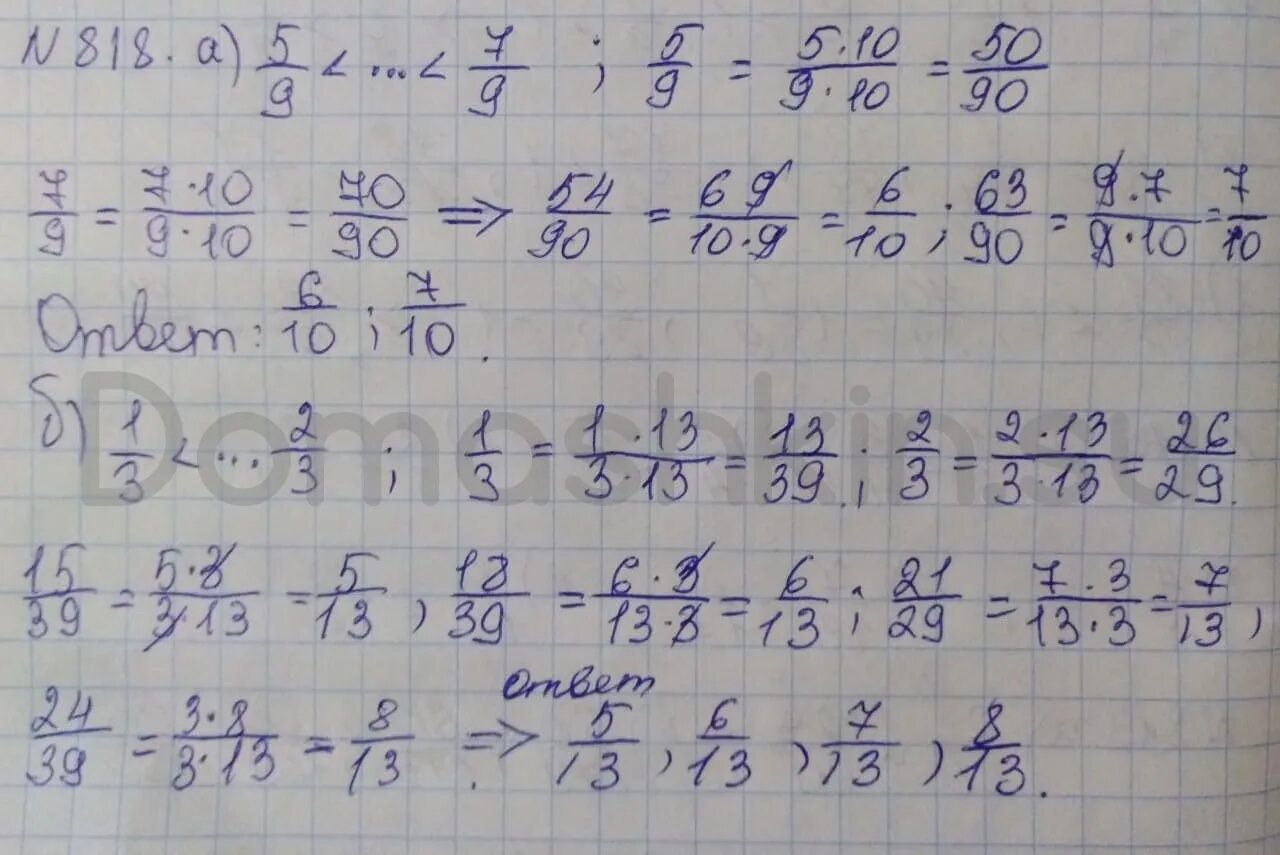 N 818. а) 5/9 < ... < 7/9 ; 5/9 = 5·10/9·10 = 50/90
7/9 = 7·10/9·10 = 70/90 => 54/90 = 6 9/10·9 = 6/10 ; 63/90 = 9·7/9·10 = 7/10
Ответ: 6/10 ; 7/10.
б) 1/3 < ... 2/3 ; 1/3 = 1·13/3·13 = 13/39 ; 2/3 = 2·13/3·13 = 26/29.
Domashkin.su
15/39 = 5·3/3·13 = 5/13 , 18/39 = 6·3/13·3 = 6/13 ; 21/29 = 7·3/13·3 = 7/13 ,
24/39 = 3·8/3·13 = 8/13 . => ответ 5/13 , 6/13 , 7/13 , 8/13 .